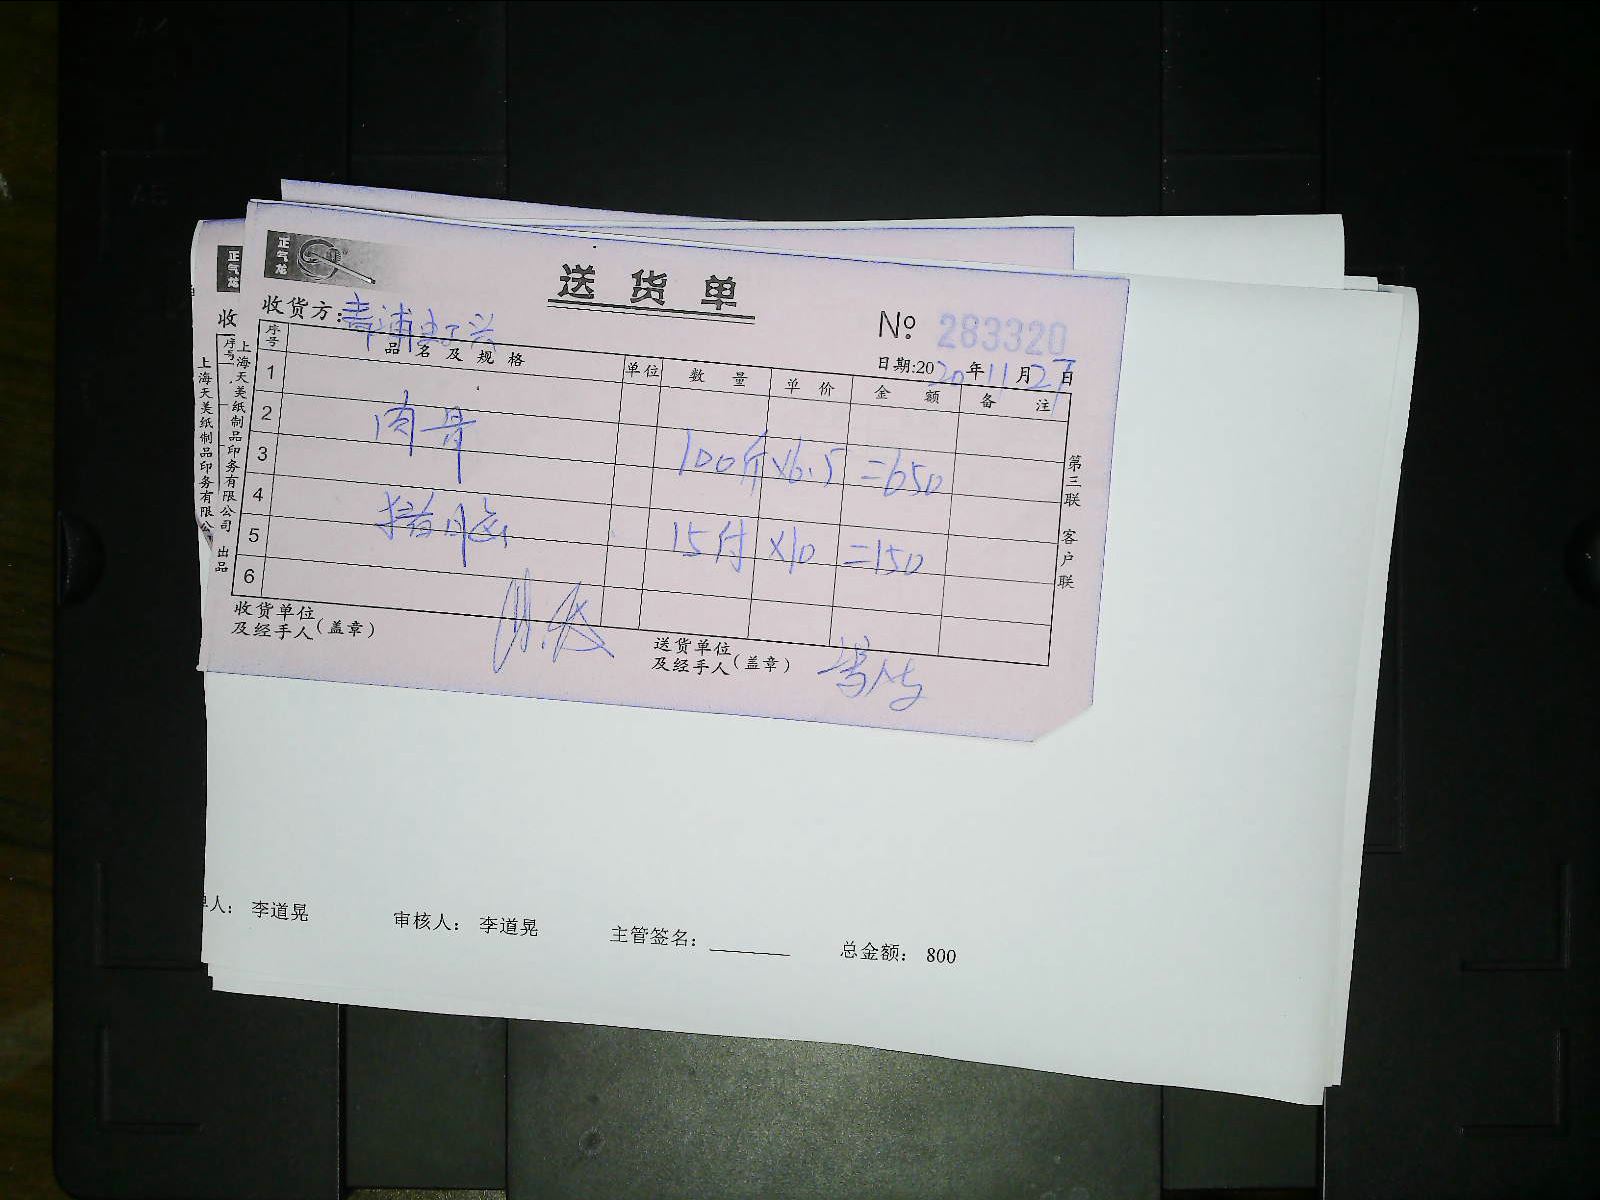 正气龙
正气龙
送货单
收货方：青浦
收
№ 283320
日期:2020年11月27日
序号 品名及规格 单位 数量 单价 金额 备注
序号
1
2 肉骨 100斤 ×6.5 =650
3
4 猪 15付 ×10 =150
5
6
收货单位
及经手人(盖章)
送货单位
及经手人(盖章)
第三联 客户联
上海天美纸制品印务有限公司 出品
上海天美纸制品印务有限公
单人： 李道晃 审核人： 李道晃 主管签名： 总金额： 800